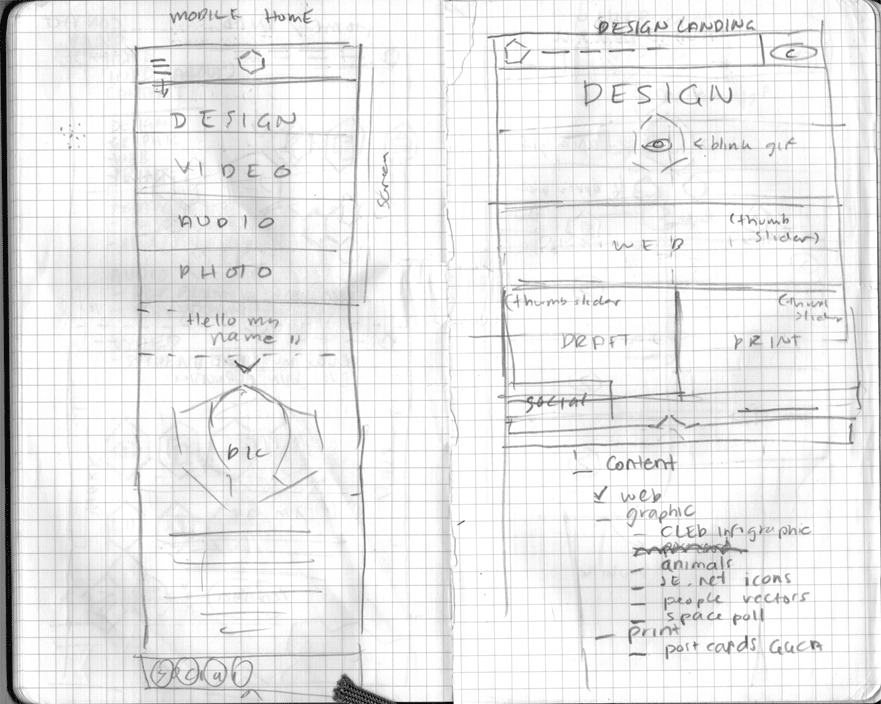 MOBILE HOME
DESIGN
VIDEO
AUDIO
PHOTO
screen
Hello my
name is
pic
DESIGN LANDING
C
DESIGN
< blink gif
WEB
(thumb
slider)
(thumb slider
(thum
slider
DRAFT
PRINT
social
content
web
graphic
CLEb infographic
animals
SE.net icons
people vectors
space poll
print
post cards GUCA